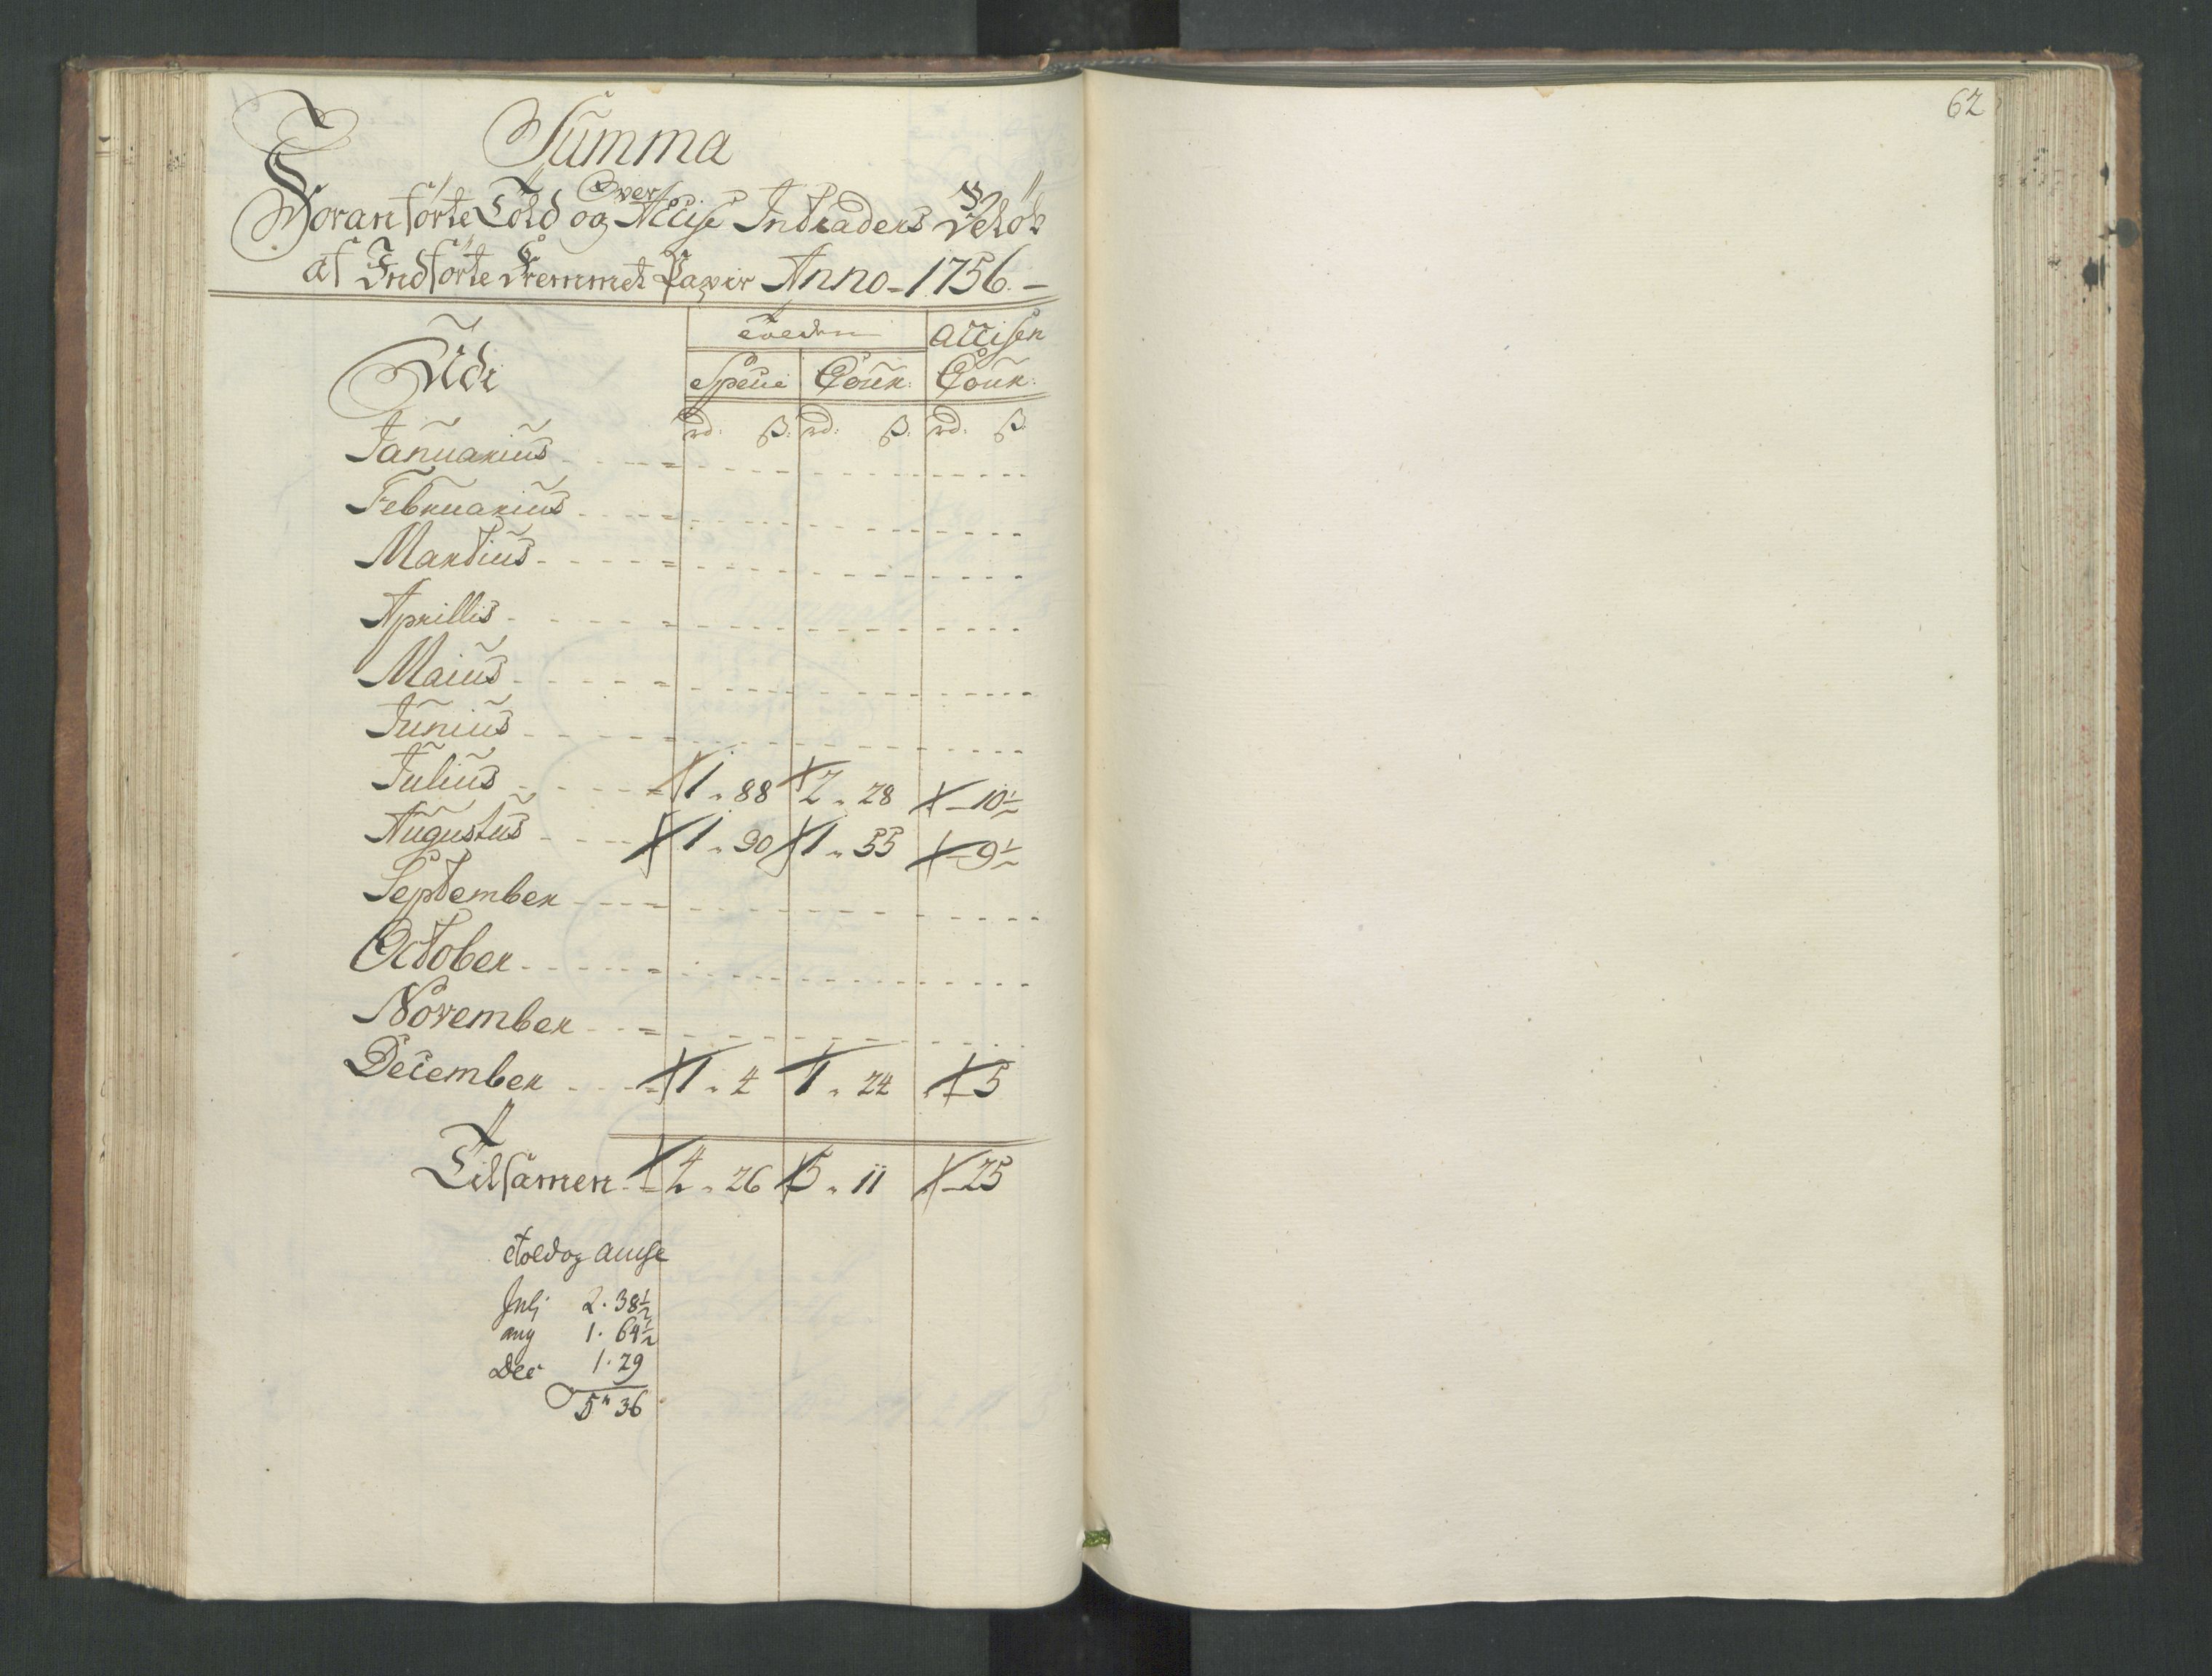 62
Summa
Over
Foranførte Told og Accise Intraders Beløb
af Indførte Fremmet Papir Anno 1756.
Udi
Tolden
Accisen
Speci
Cour:
Cour:
rd: ß: rd: ß. rd. ß
Januarius
Februarius
Martius
Aprillis
Maius
Junius
Julius 1 " 88 2 " 28 10½
Augustus 1 " 90 1 " 55 9½
September
October
November
December 1 " 4 1 " 24 5
Tilsamen 4 " 26 5 " 11 25
Told og accise
Julj 2. 38½
aug 1. 64½
Dec 1. 29
5" 36